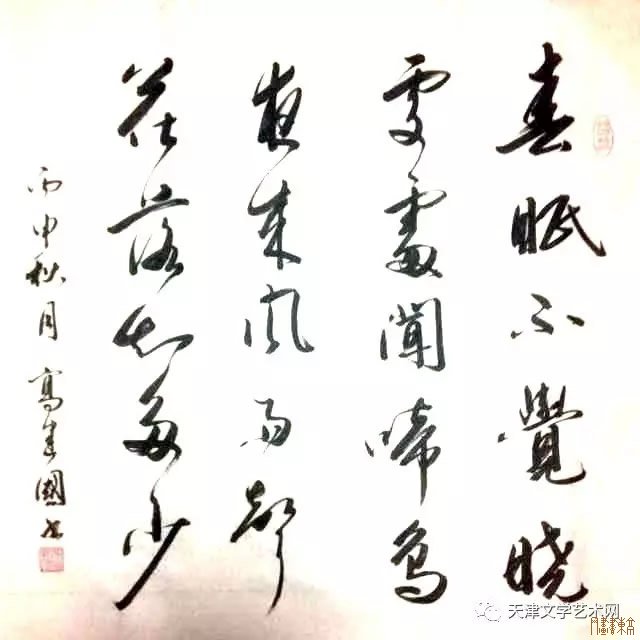 春眠不覺曉
處處聞啼鳥
夜來風雨聲
花落知多少
丙申秋月 高建國书
天津文学艺术网